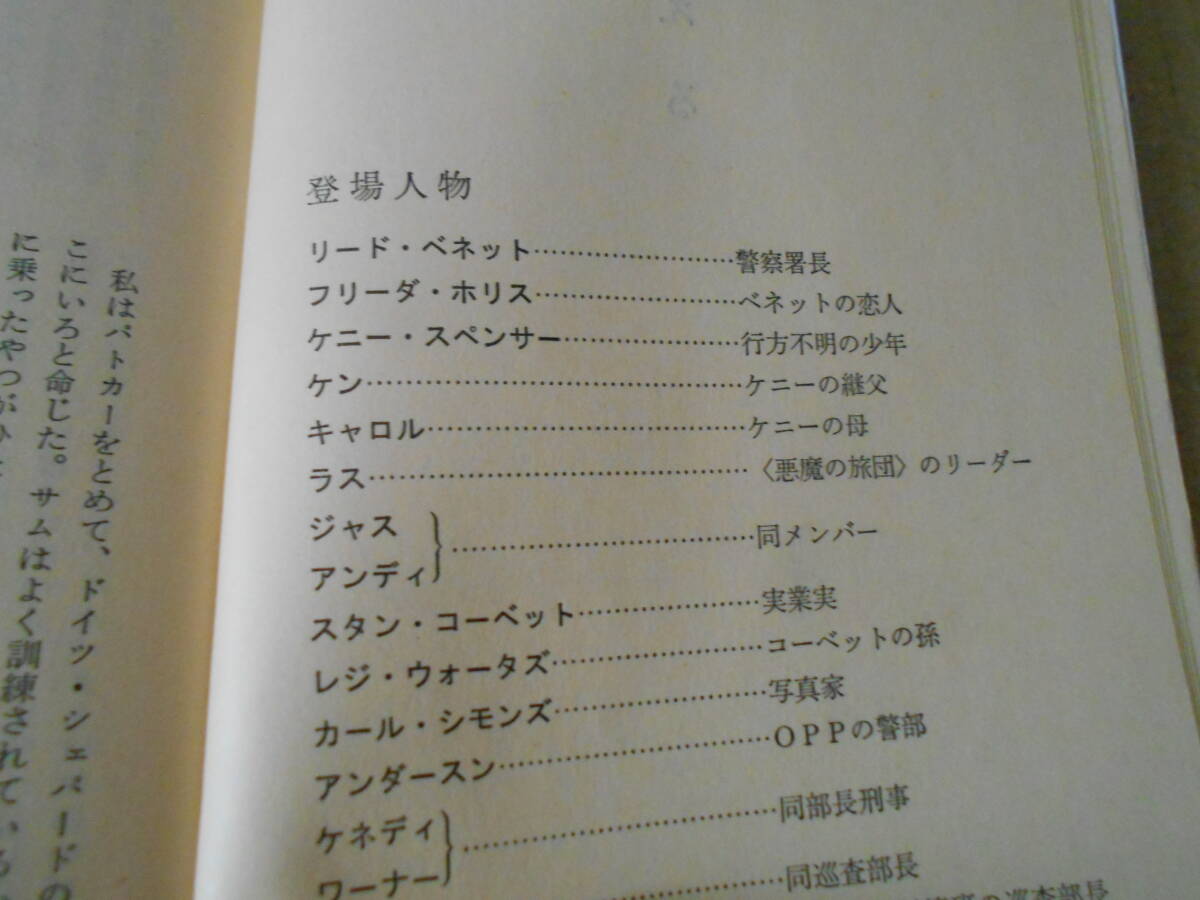 登場人物
リード・ベネット……………………警察署長
フリーダ・ホリス……………………ベネットの恋人
ケニー・スペンサー…………………行方不明の少年
ケン……………………………………ケニーの継父
キャロル………………………………ケニーの母
ラス……………………………………〈悪魔の旅団〉のリーダー
ジャス
アンディ}………………………………同メンバー
スタン・コーベット…………………実業実
レジ・ウォータズ……………………コーベットの孫
カール・シモンズ……………………写真家
アンダースン…………………………OPPの警部
ケネディ
ワーナー}………………………………同部長刑事
…………………同巡査部長
の巡査部長
私はパトカーをとめて、ドイツ・シェパードの
こにいろと命じた。サムはよく訓練されている
に乗ったやつがひ